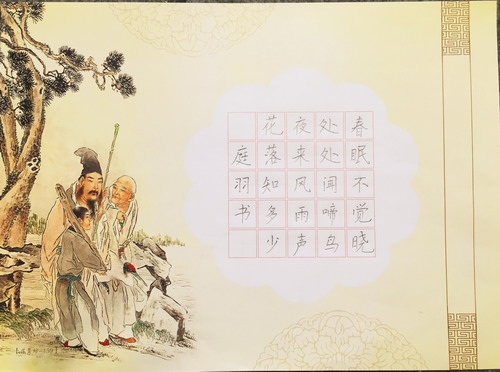 春眠不觉晓
处处闻啼鸟
夜来风雨声
花落知多少
庭羽书